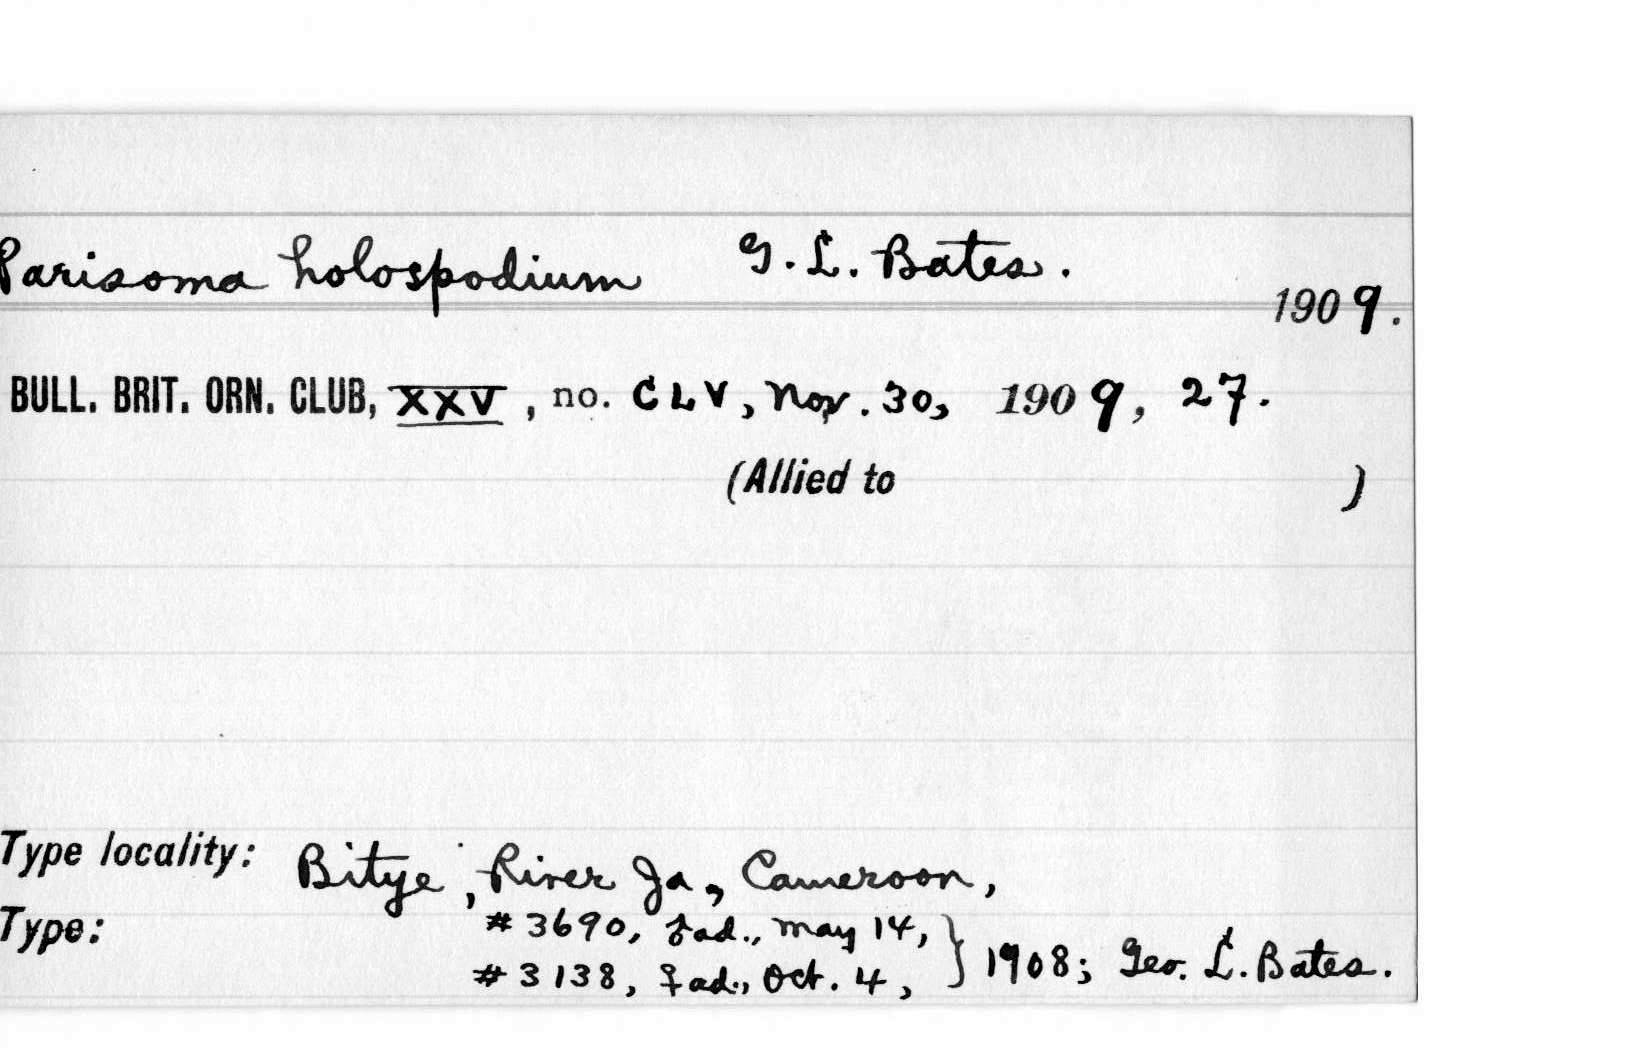 Parisoma holospodium G. L. Bates.
1909.
BULL. BRIT. ORN. CLUB, XXV, no. CLV, Nov. 30, 1909, 27.
(Allied to )
Type locality: Bitye, River Ja, Cameroon,
Type: #3690, ♀ad., May 14,
#3138, ♀ad., Oct. 4, } 1908; Geo. L. Bates.